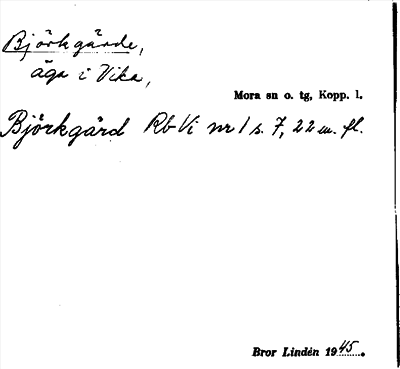 Björkgårde,
äga i Vika,
Mora sn o. tg, Kopp. l.
Björkgård Rb Vi nr 1 s. 7, 22 m. fl.
Bror Lindén 1945.